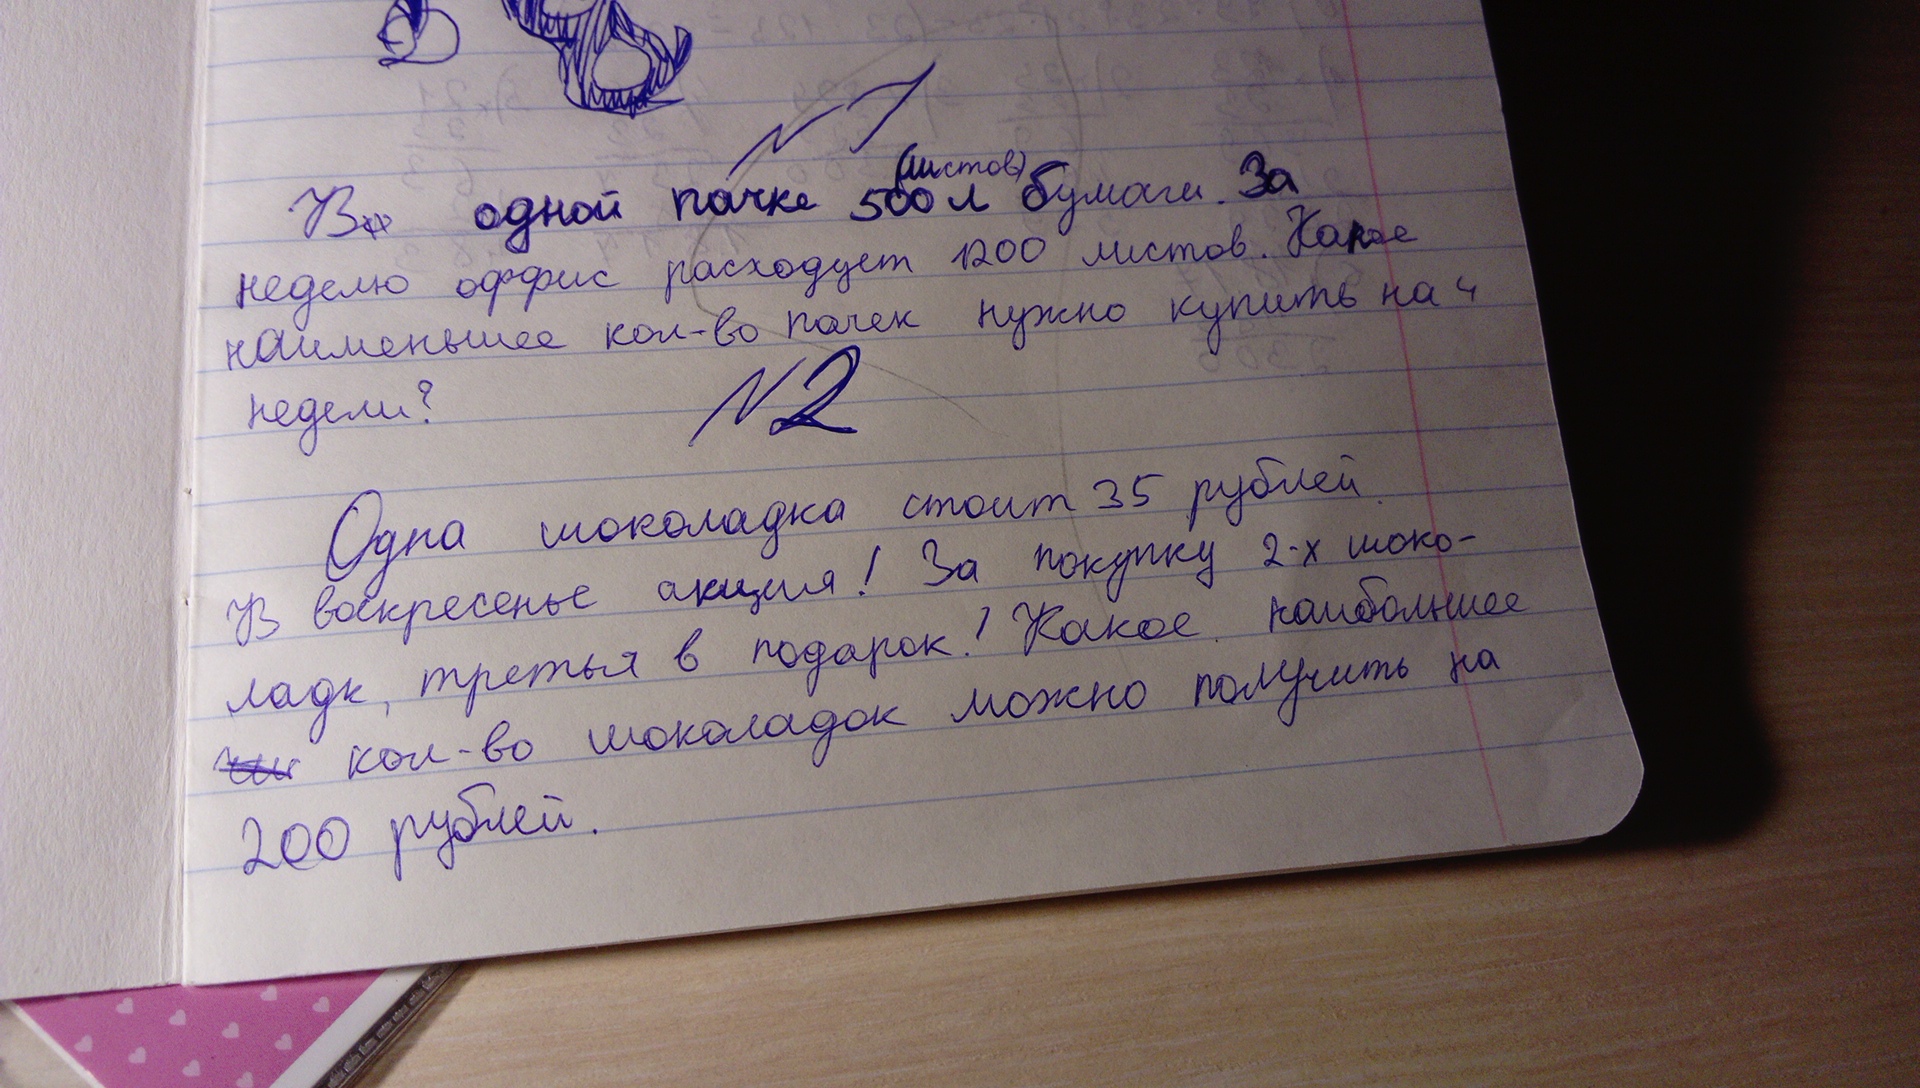 №1
(листов)
В одной пачке 500 л бумаги. За
неделю оффис расходует 1200 листов. Какое
наименьшее кол-во пачек нужно купить на 4
недели?
№2
Одна шоколадка стоит 35 рублей.
В воскресенье акция! За покупку 2-х шоко-
ладк, третья в подарок! Какое наибольшее
кол-во шоколадок можно получить на
200 рублей.